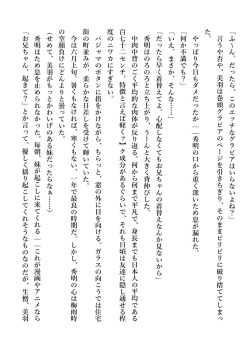 「ふ～ん。だったら、このエッチなグラビアはいらないよね？」
言うや否や、美羽は巻頭グラビアのページを引きちぎり、そのままビリビリに破り捨ててしまっ
た。
やっぱり今日もダメだったか――秀明の口から重く深いため息が漏れた。
「何か不満でも？」
「いえ、まさか、そんな……」
「だったら早く着替えてよ。心配しなくてもお兄ちゃんの着替えなんか見ないから」
秀明はのろのろと立ち上がり、う～んと大きく背伸びした。
中肉中背のごく平均的な肉体が反り返る。何から何まで平凡で、身長までも日本人の平均である
百七十二センチ。特徴と言えば軽くオタク成分があるくらいで、それも日頃は友達に隠し通せる程
度のニワカにすぎない。
パジャマのボタンに指をかけながら、ちらっと、窓の外に目を向ける。ガラスの向こうでは住宅
街の町並みが、柔らかな日差しを受けて輝いていた。
今は六月上旬。暑くもなければ、寒くもない、一年で最良の時期だ。しかし、秀明の心は梅雨時
の空模様負けにどんよりと曇っていた。
「せめて、美羽がもっとかわいげのある妹だったらなあ……」
秀明はため息を止められなかった。毎朝、妹が起こしに来てくれる――これが漫画やアニメなら
「お兄ちゃん、起きて？」とか言って、優しく揺り起こしてくれそうなものなのだが、生憎、美羽